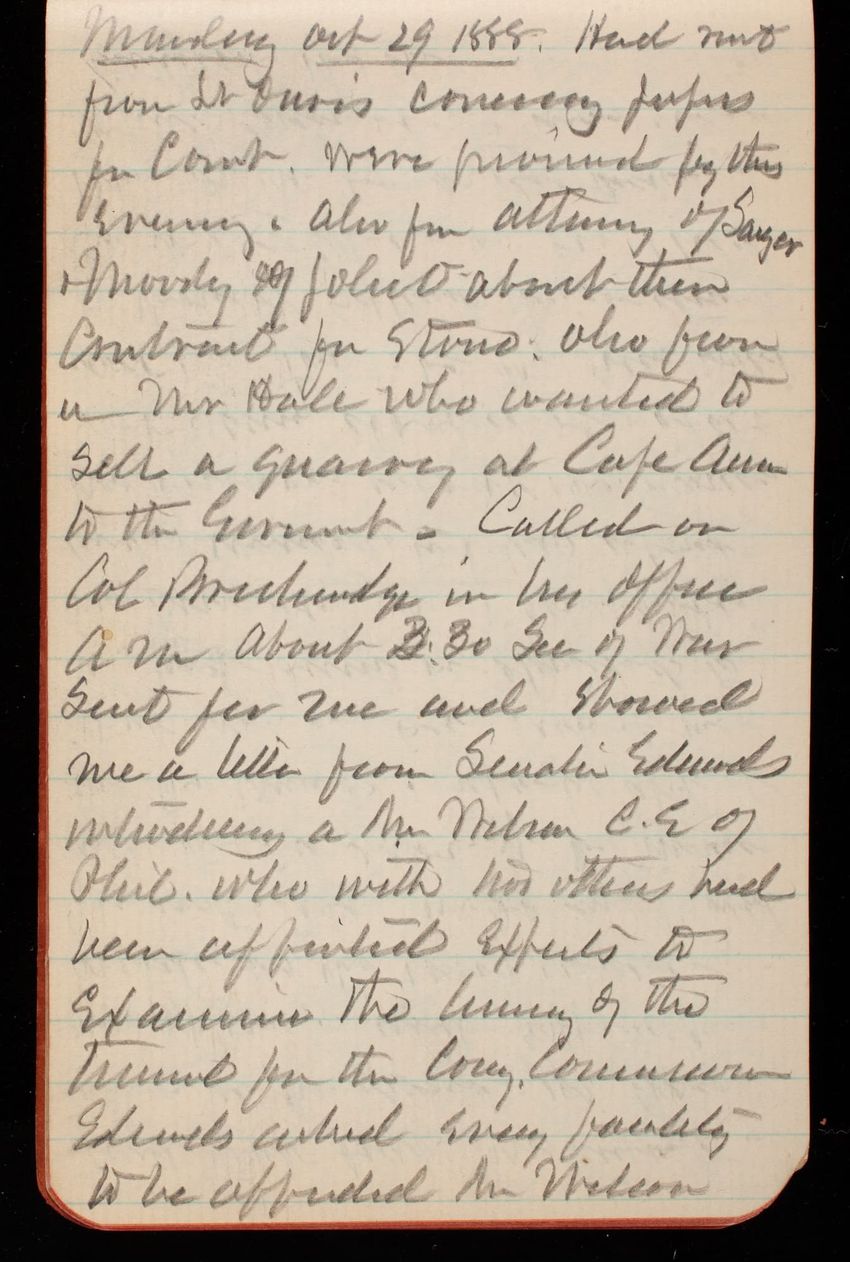 Monday Oct 29 1888. Had note
from Lt Davis concerning papers
for Comt. Were promised for this
Evening. Also from attorney of Sanger
+ Moody of Joliet about their
Contract for Stone. Also from
a Mr Hale who wanted to
Sell a quarry at Cape Ann
to the Government. Called on
Col Breckinridge in his office
A M About 3.30 Sec of War
Sent for me and Showed
me a letter from Senator Edmunds
introducing a Mr Wilson C.E of
Phil. who with two others had
been appointed Experts to
Examine the lining of the
Tunnel for the Cong. Commission
Edmunds asked Every facility
to be afforded Mr Wilson